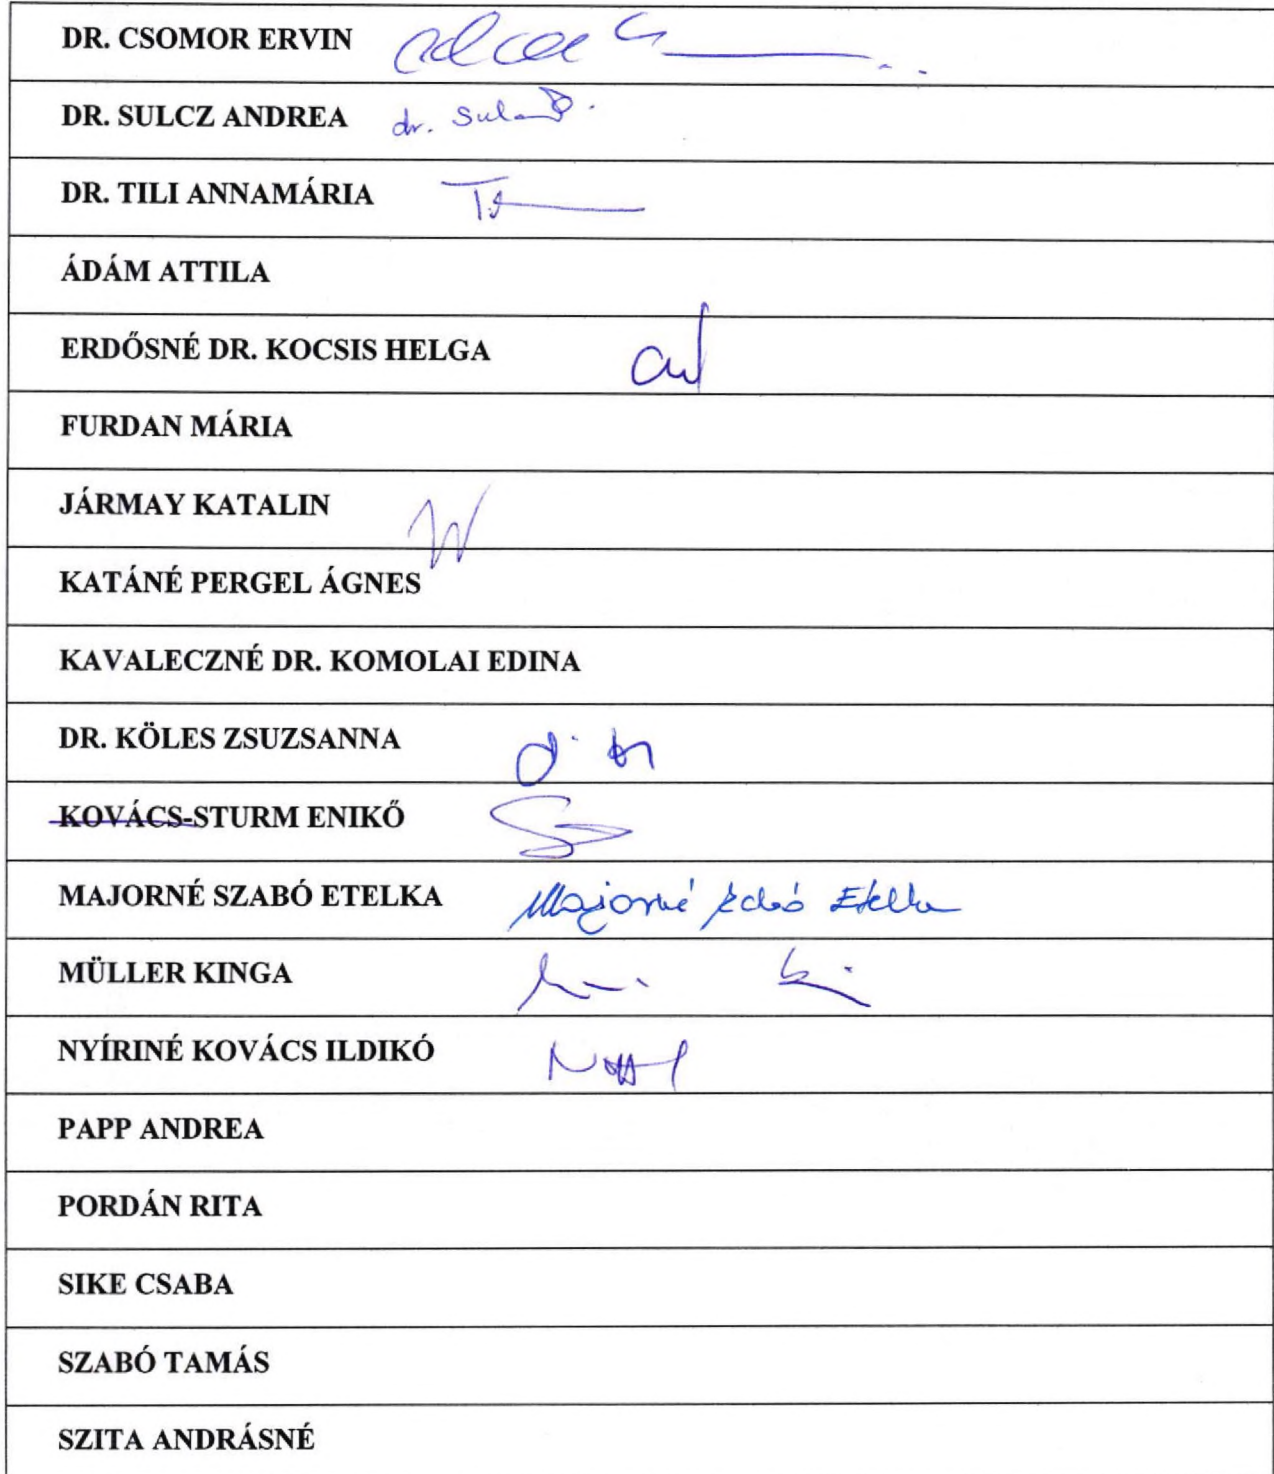 DR. CSOMOR ERVIN
DR. SULCZ ANDREA dr.
DR. TILI ANNAMÁRIA
ÁDÁM ATTILA
ERDŐSNÉ DR. KOCSIS HELGA
FURDAN MÁRIA
JÁRMAY KATALIN
KATÁNÉ PERGEL ÁGNES
KAVALECZNÉ DR. KOMOLAI EDINA
DR. KÖLES ZSUZSANNA
KOVÁCS-STURM ENIKŐ
MAJORNÉ SZABÓ ETELKA Majorné Szabó Etelka
MÜLLER KINGA
NYÍRINÉ KOVÁCS ILDIKÓ
PAPP ANDREA
PORDÁN RITA
SIKE CSABA
SZABÓ TAMÁS
SZITA ANDRÁSNÉ